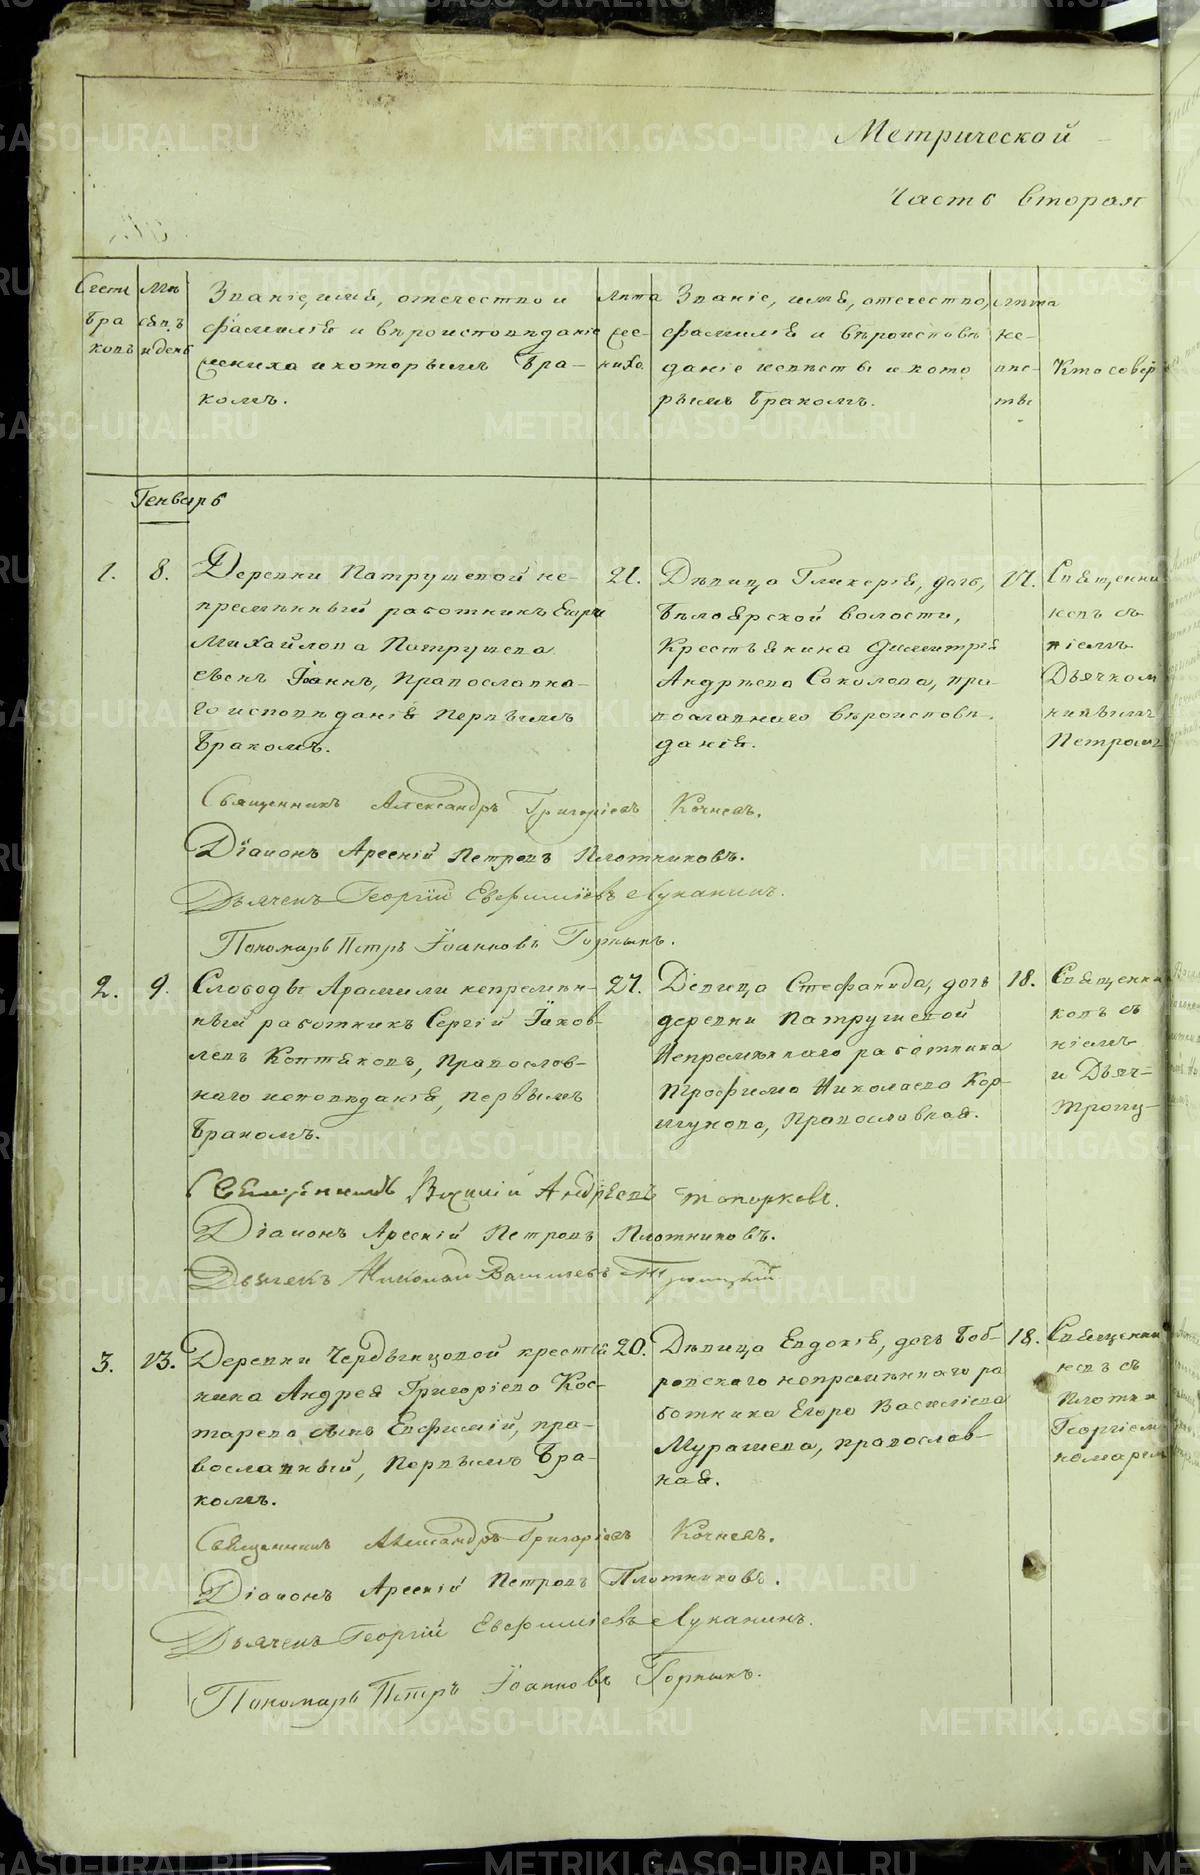 Метрической
Часть вторая
Счетъ бра ковъ
Мѣ сяцъ и день
Званіе, имя, отечество и фамилія и вѣроисповѣданіе жениха и которымъ бра- комъ.
Лѣта же- ниха
Званіе, имя, отечество, фамилія и вѣроисповѣ даніе невѣсты и кото рымъ бракомъ.
Лѣта не- вѣс- ты
Кто совер
Генварь
1. 8.
Деревни Патрушевой не-
премѣнный работникъ
Михайлова Патрушева
сынъ Іоаннъ, православна-
го исповѣданія первымъ
бракомъ.
21.
Дѣвица Гликерія, дочь,
Бѣлоярской волости,
Крестьянина Димитрія
Андрѣева Соколова, пра-
вославнаго вѣроисповѣ-
данія.
17.
Священни
комъ съ
ніемъ
Дьячком
нинымъ
Петромъ
Священникъ Александръ Григоріевъ Кочневъ.
Діаконъ Арсеній Петровъ Плотниковъ.
Дьячекъ Георгій Евфиміевъ Луканинъ.
Пономарь Петръ Іоанновъ Горныхъ.
2. 9.
Слободы Арамили непремѣн-
ный работникъ Сергій Іаков-
левъ Коптяковъ, православ-
наго исповѣданія, первымъ
бракомъ.
27.
Дѣвица Стефанида, дочь
деревни Патрушевой
Непремѣннаго работника
Трофима Николаева Кор-
шунова, Православная.
18.
Священни
комъ съ
ніемъ
и Дьяч-
Троиц-
Священникъ Андрѣевъ Топорковъ.
Діаконъ Арсеній Петровъ Плотниковъ.
Дьячекъ Николай Васильевъ Троицкій
3. 13.
Деревни Чердынцовой кресть
нина Андрея Григоріева Кос-
тарева сынъ Евфимій, пра-
вославный, Первымъ бра-
комъ.
20.
Дѣвица Евдокія, дочь Боб-
ровскаго непремѣннаго ра
ботника Егора Василіева
Мурашева, православ-
ная.
18.
Священни
комъ съ
Плотни
Георгіем
номарем
Священникъ Александръ Григоріевъ Кочневъ.
Діаконъ Арсеній Петровъ Плотниковъ.
Дьячекъ Георгій Евфиміевъ Луканинъ.
Пономарь Петръ Іоанновъ Горныхъ.